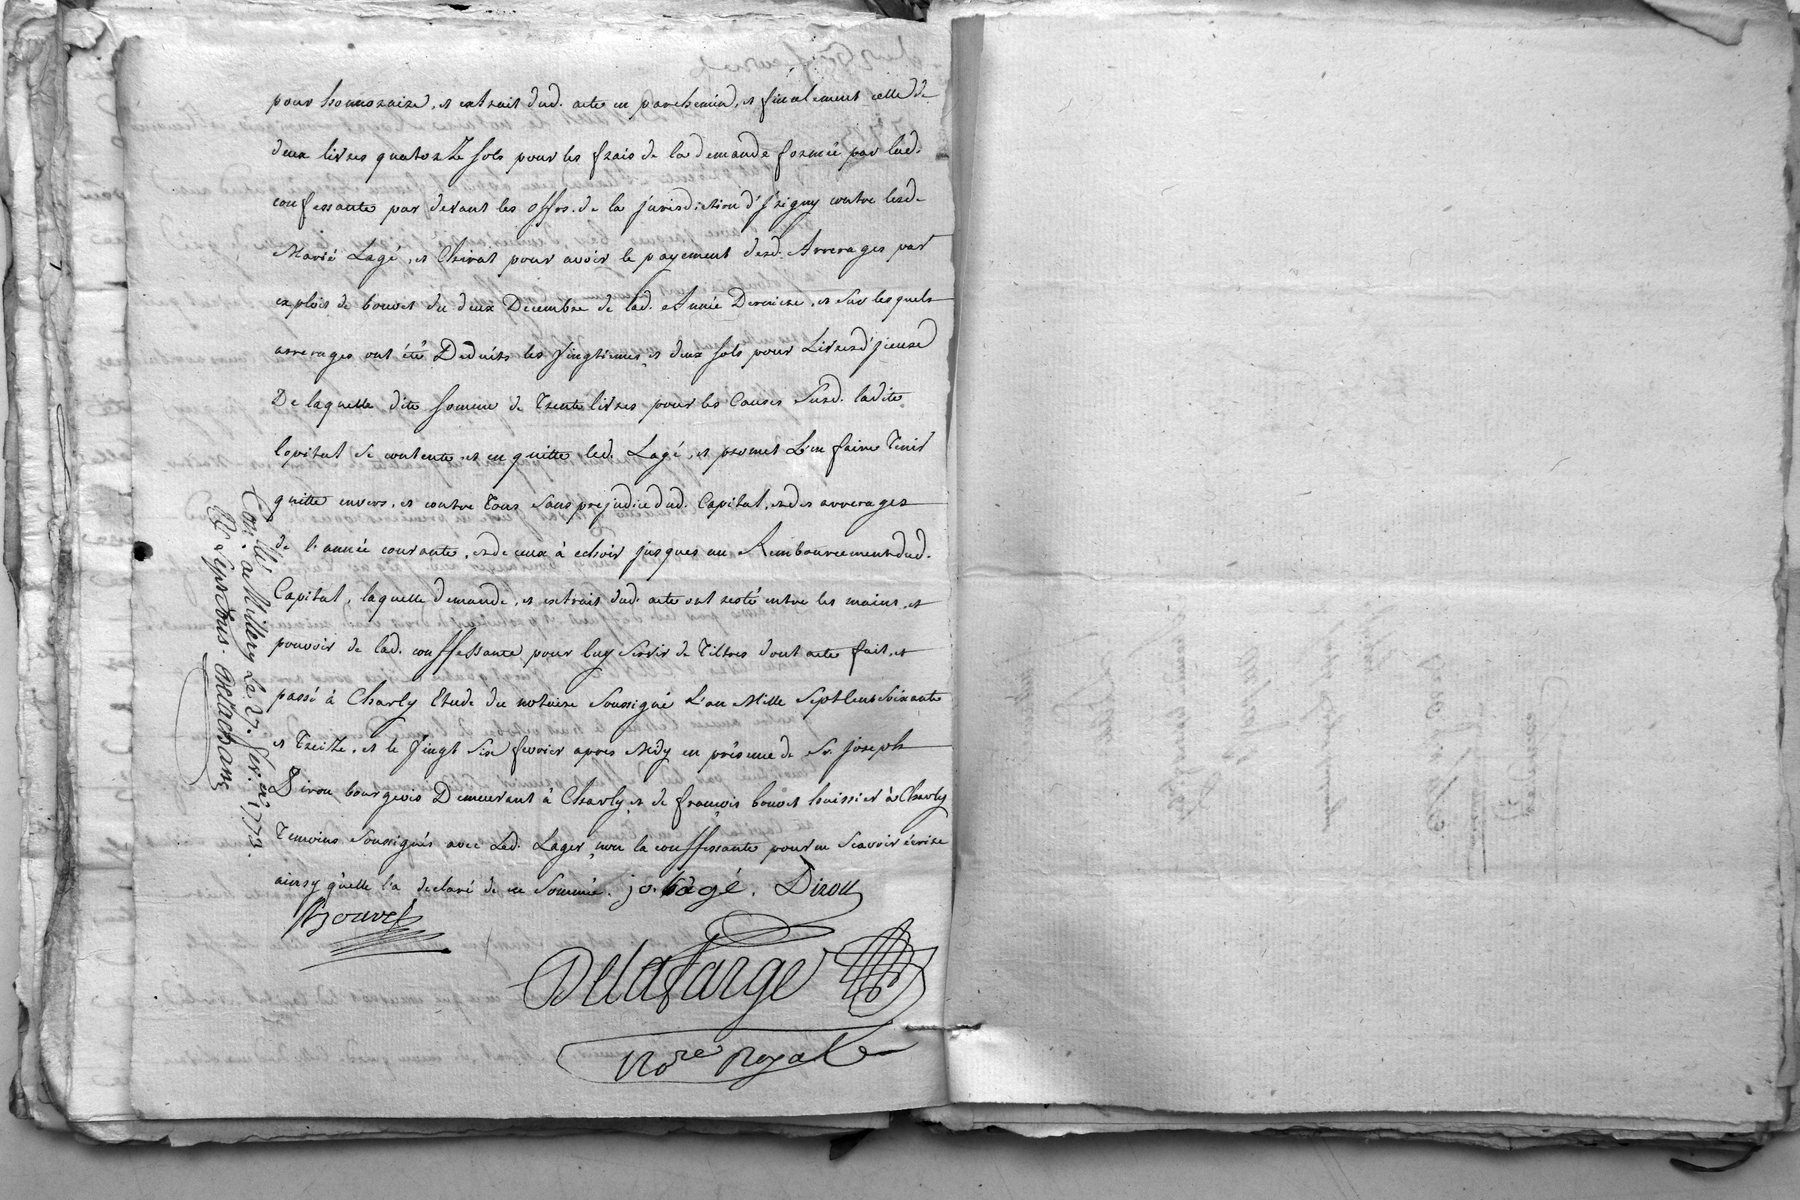 pour honnoraire, et extrait dud. acte en parchemin, et finalement celle de
deux livres quatorze sols pour les frais de la demande formée par lad.
confessante par devant les offrs. de la jurisdiction d'jrigny contre lesd.
Marié Lagé, et Chirat pour avoir le payement desd. Arrerages par
exploit de bouvet du deux Decembre de lad. Année Derniere, et sur lesquels
arrerages ont été Deduits les vingtiemes et deux sols pour Livres d'jceux
De laquelle dite somme de Trente livres pour les Causes susd. ladite
se contente et en quitte led. Lagé, et promet L'en faire Tenir
quitte envers, et contre Tous sans prejudice dud. Capital, et des arrerages
de l'année courante, et de ceux à echoir jusques au Remboursement dud.
Capital, laquelle demande, et extrait dud. acte ont resté entre les mains, et
pouvoir de lad. confessante pour luy servir de Tiltres dont acte fait, et
passé à Charly Etude du notaire soussigné L'an Mille Sept Cent soixante
et Treize, et le vingt six fevrier apres Midy en présence de Sr. joseph
Dirou bourgeois Demeurant à Charly, et de francois bouvet huissier à Charly
Temoins soussignés avec Led. Lager, non la confessante pour ne scavoir écrire
ainsy qu'elle l'a declaré de ce sommée. jo. lagé. Dirou
Bouvet
Delafarge
Nore Royal
Con.llé à Millery Le 27. fev. er 1773.
R. Sept sous.